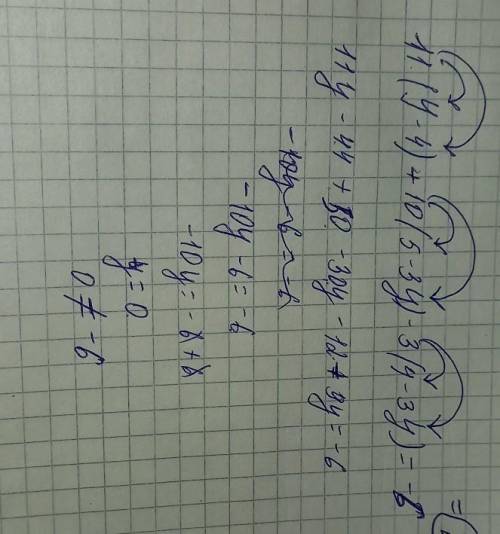 11(y-4)+10(5-3y)-3(4-3y)=-6
11y-44+50-30y-12+9y=-6
-10y-6=-6
-10y=-6+6
y=0
0≠-6